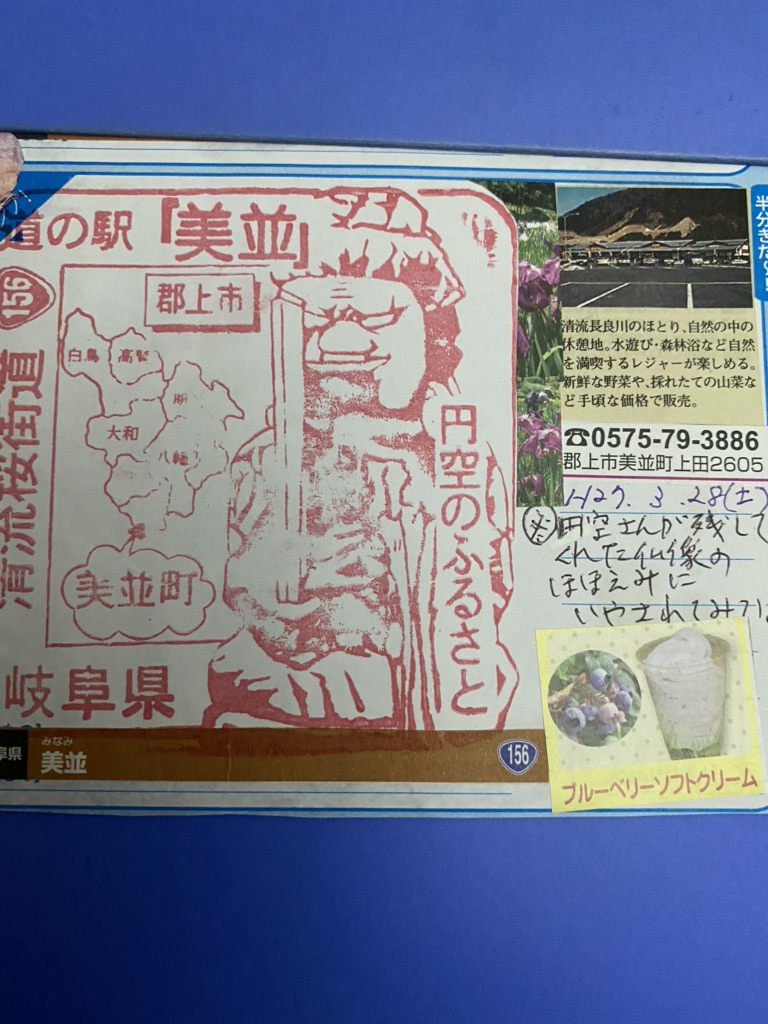 道の駅「美並」
156
郡上市
白鳥
高鷲
明
大和
八幡
美並町
清流桜街道
円空のふるさと
岐阜県
阜県
みなみ
美並
156
清流長良川のほとり、自然の中の
休憩地。水遊び・森林浴など自然
を満喫するレジャーが楽しめる。
新鮮な野菜や、採れたての山菜な
ど手頃な価格で販売。
☎0575-79-3886
郡上市美並町上田2605
H27. 3. 28(土)
円空さんが残して
くれた仏像の
ほほえみに
いやされてみては
ブルーベリーソフトクリーム